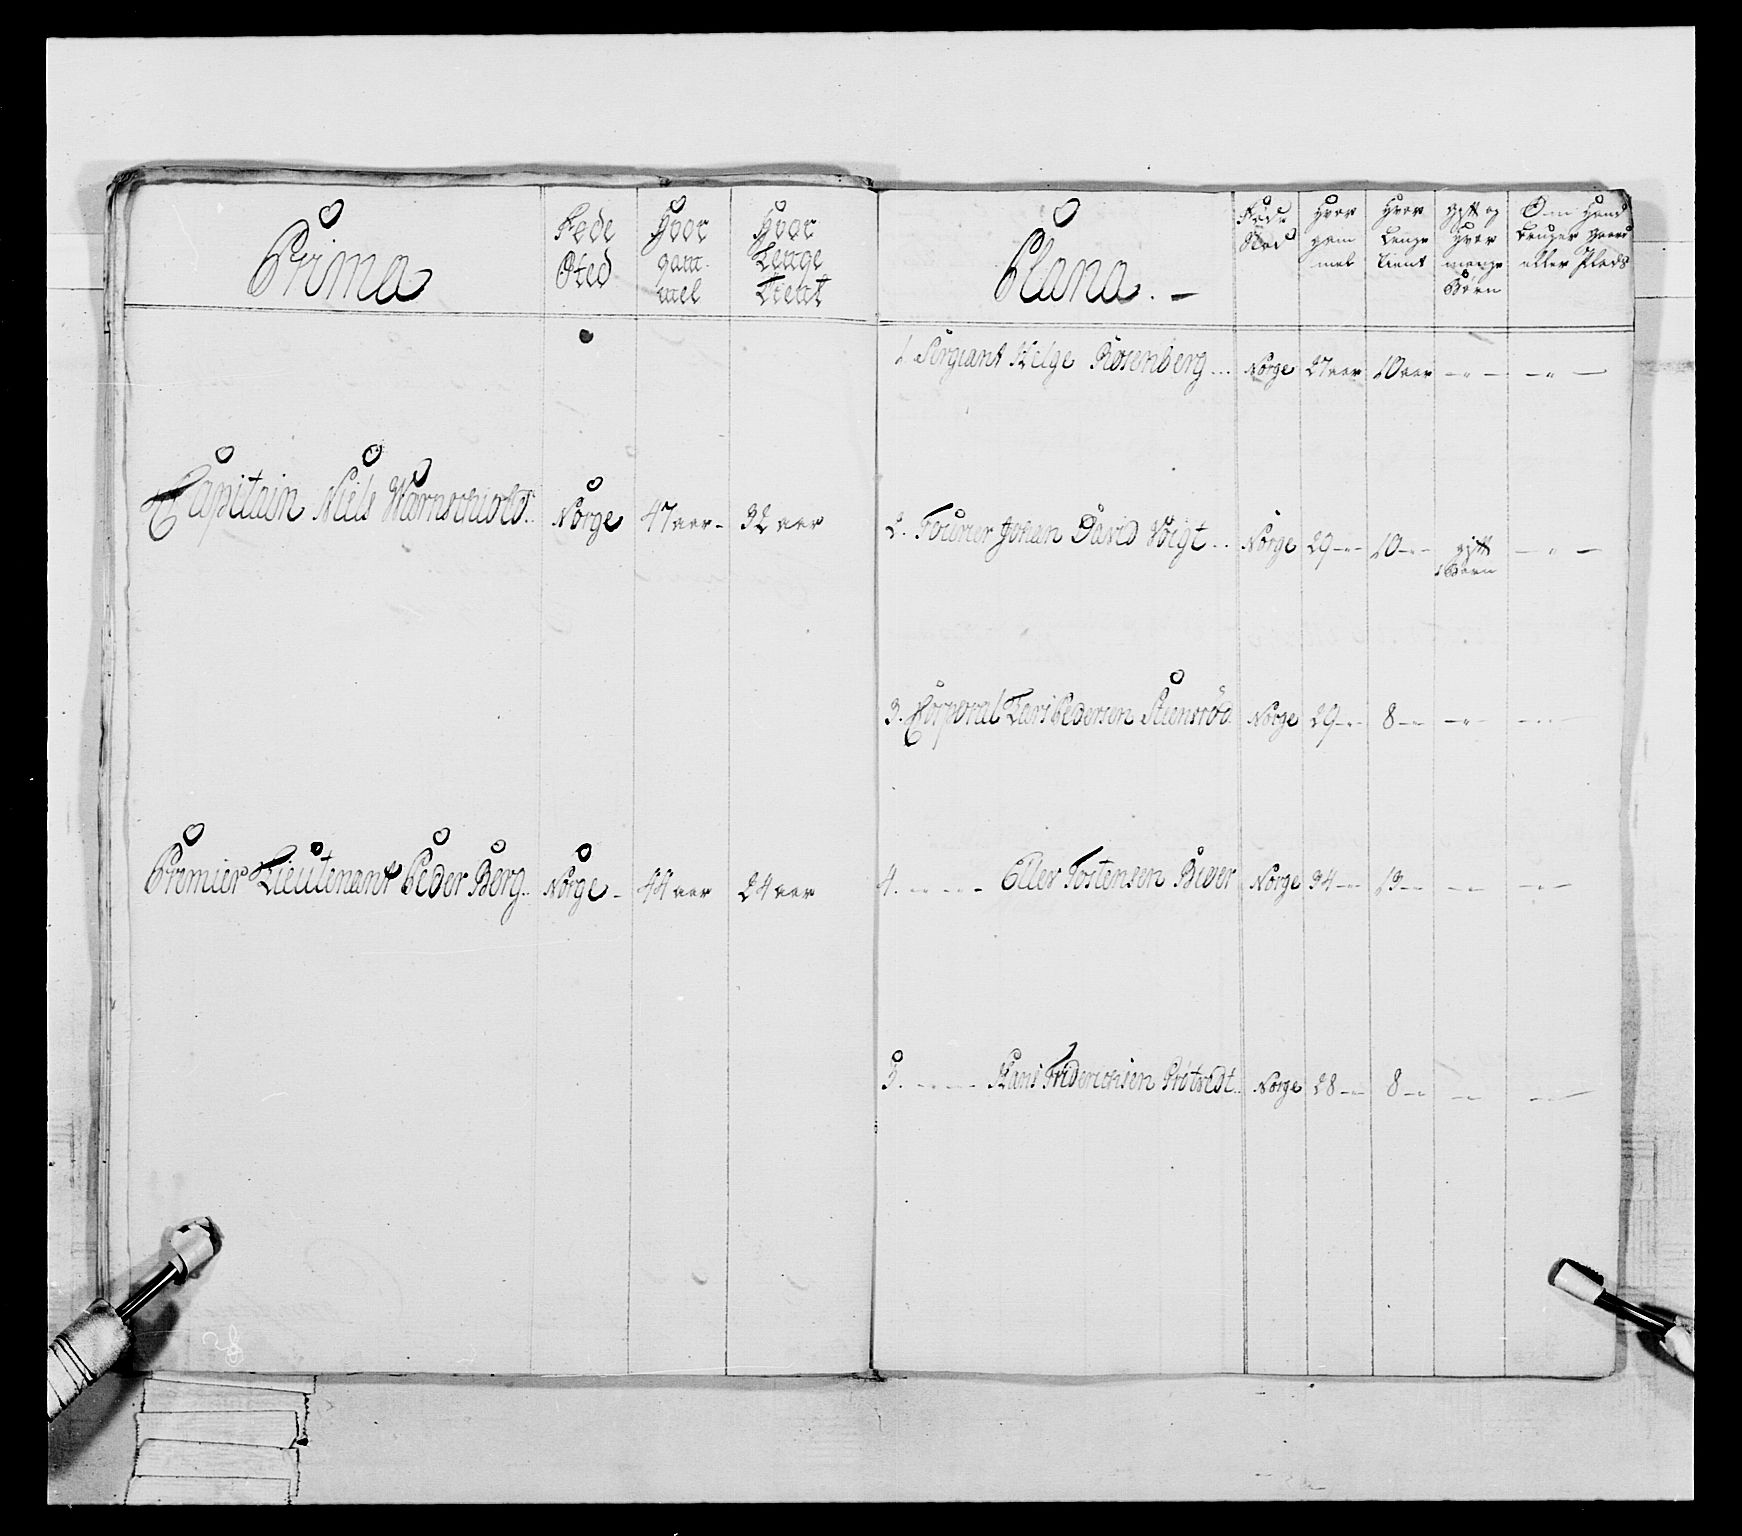 Prima
Føde Sted
Hvor gam mel
Hvor Lenge Tient
Capitain Niels Warnschiold.. Norge 47 aar - 32 aar
Premier Lieutenant Peder Borg.. Norge - 44 aar 24 aar
Plana. -
Føde Stæd
Hvor gam mel
Hvor Lenge tient
gift og hvor mange Børn
Om Hand bruger gaard eller Plads
1. Sergiant Helge Rosenberg... Norge 27 aar 10 aar - " - - " -
2. Fourier Johan David Voigt.. Norge 29 - " - 10 - " - gift - " -
1 Barn
3. Corporal Lars Pedersen Steensrød Norge 29 - " - 8 - " - - " - - " -
4. - " - " - Eller Tostensen Bever Norge 34 - " - 13 - " - - " - - " -
5. - " - " - Hans Friderichsen Norge 28 - " - 8 - " - - " - - " -